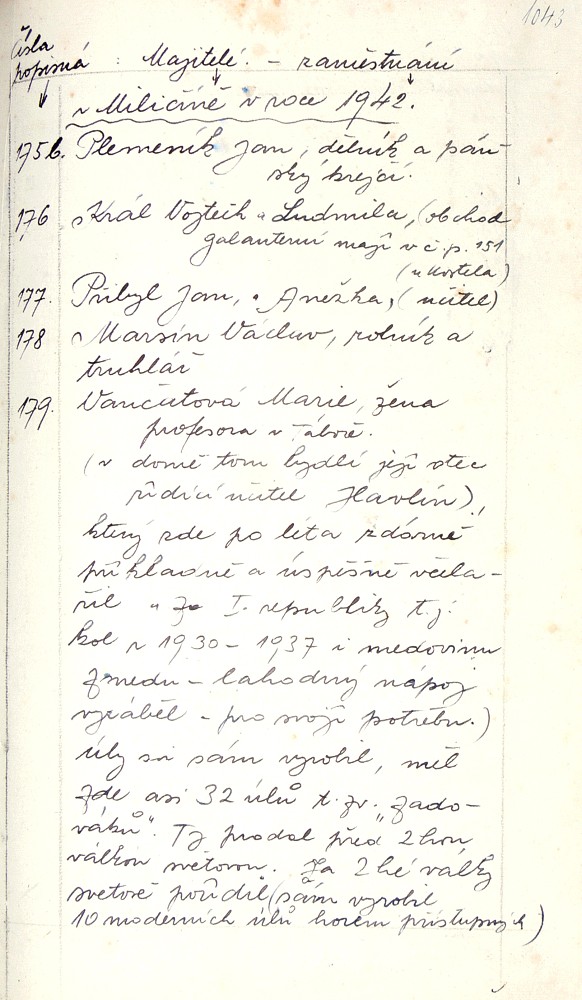 1043
Čísla
popisná : Majitelé. - zaměstnání
v Miličíně v roce 1942.
175b. Plemeník Jan, dělník a pán-
ský krejčí.
176 Král Vojtěch a Ludmila, (obchod
galanterní mají v č.p. 151
(u kostela)
177. Přibyl Jan, a Anežka, (učitel)
178 Marsín Václav, rolník a
truhlář
179. Vančutová Marie, žena
profesora v Táboře.
(v domě tom bydlí její otec
řídící učitel Havlín),
který zde po léta zdárně
příkladně a úspěšně včela-
řil a za I. republiky t.j.
kol r 1930 - 1937 i medovinu
z medu - lahodný nápoj
vyráběl - pro svoji potřebu.)
Úly si sám vyrobil, měl
zde asi 32 úlů t.zv. "zado-
váků". Ty prodal před 2hou
válkou světovou. Za 2hé války
světové pořídil (sám vyrobil
10 moderních úlů horem přístupných)